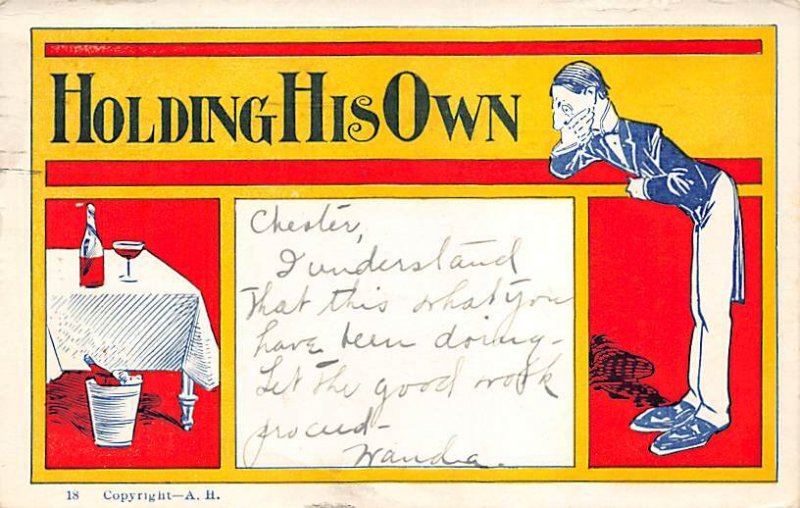 HOLDING HIS OWN
Chester,
I understand
that this what you
have been doing-
Let the good work
proceed-
Wanda.
18 Copyright—A. H.